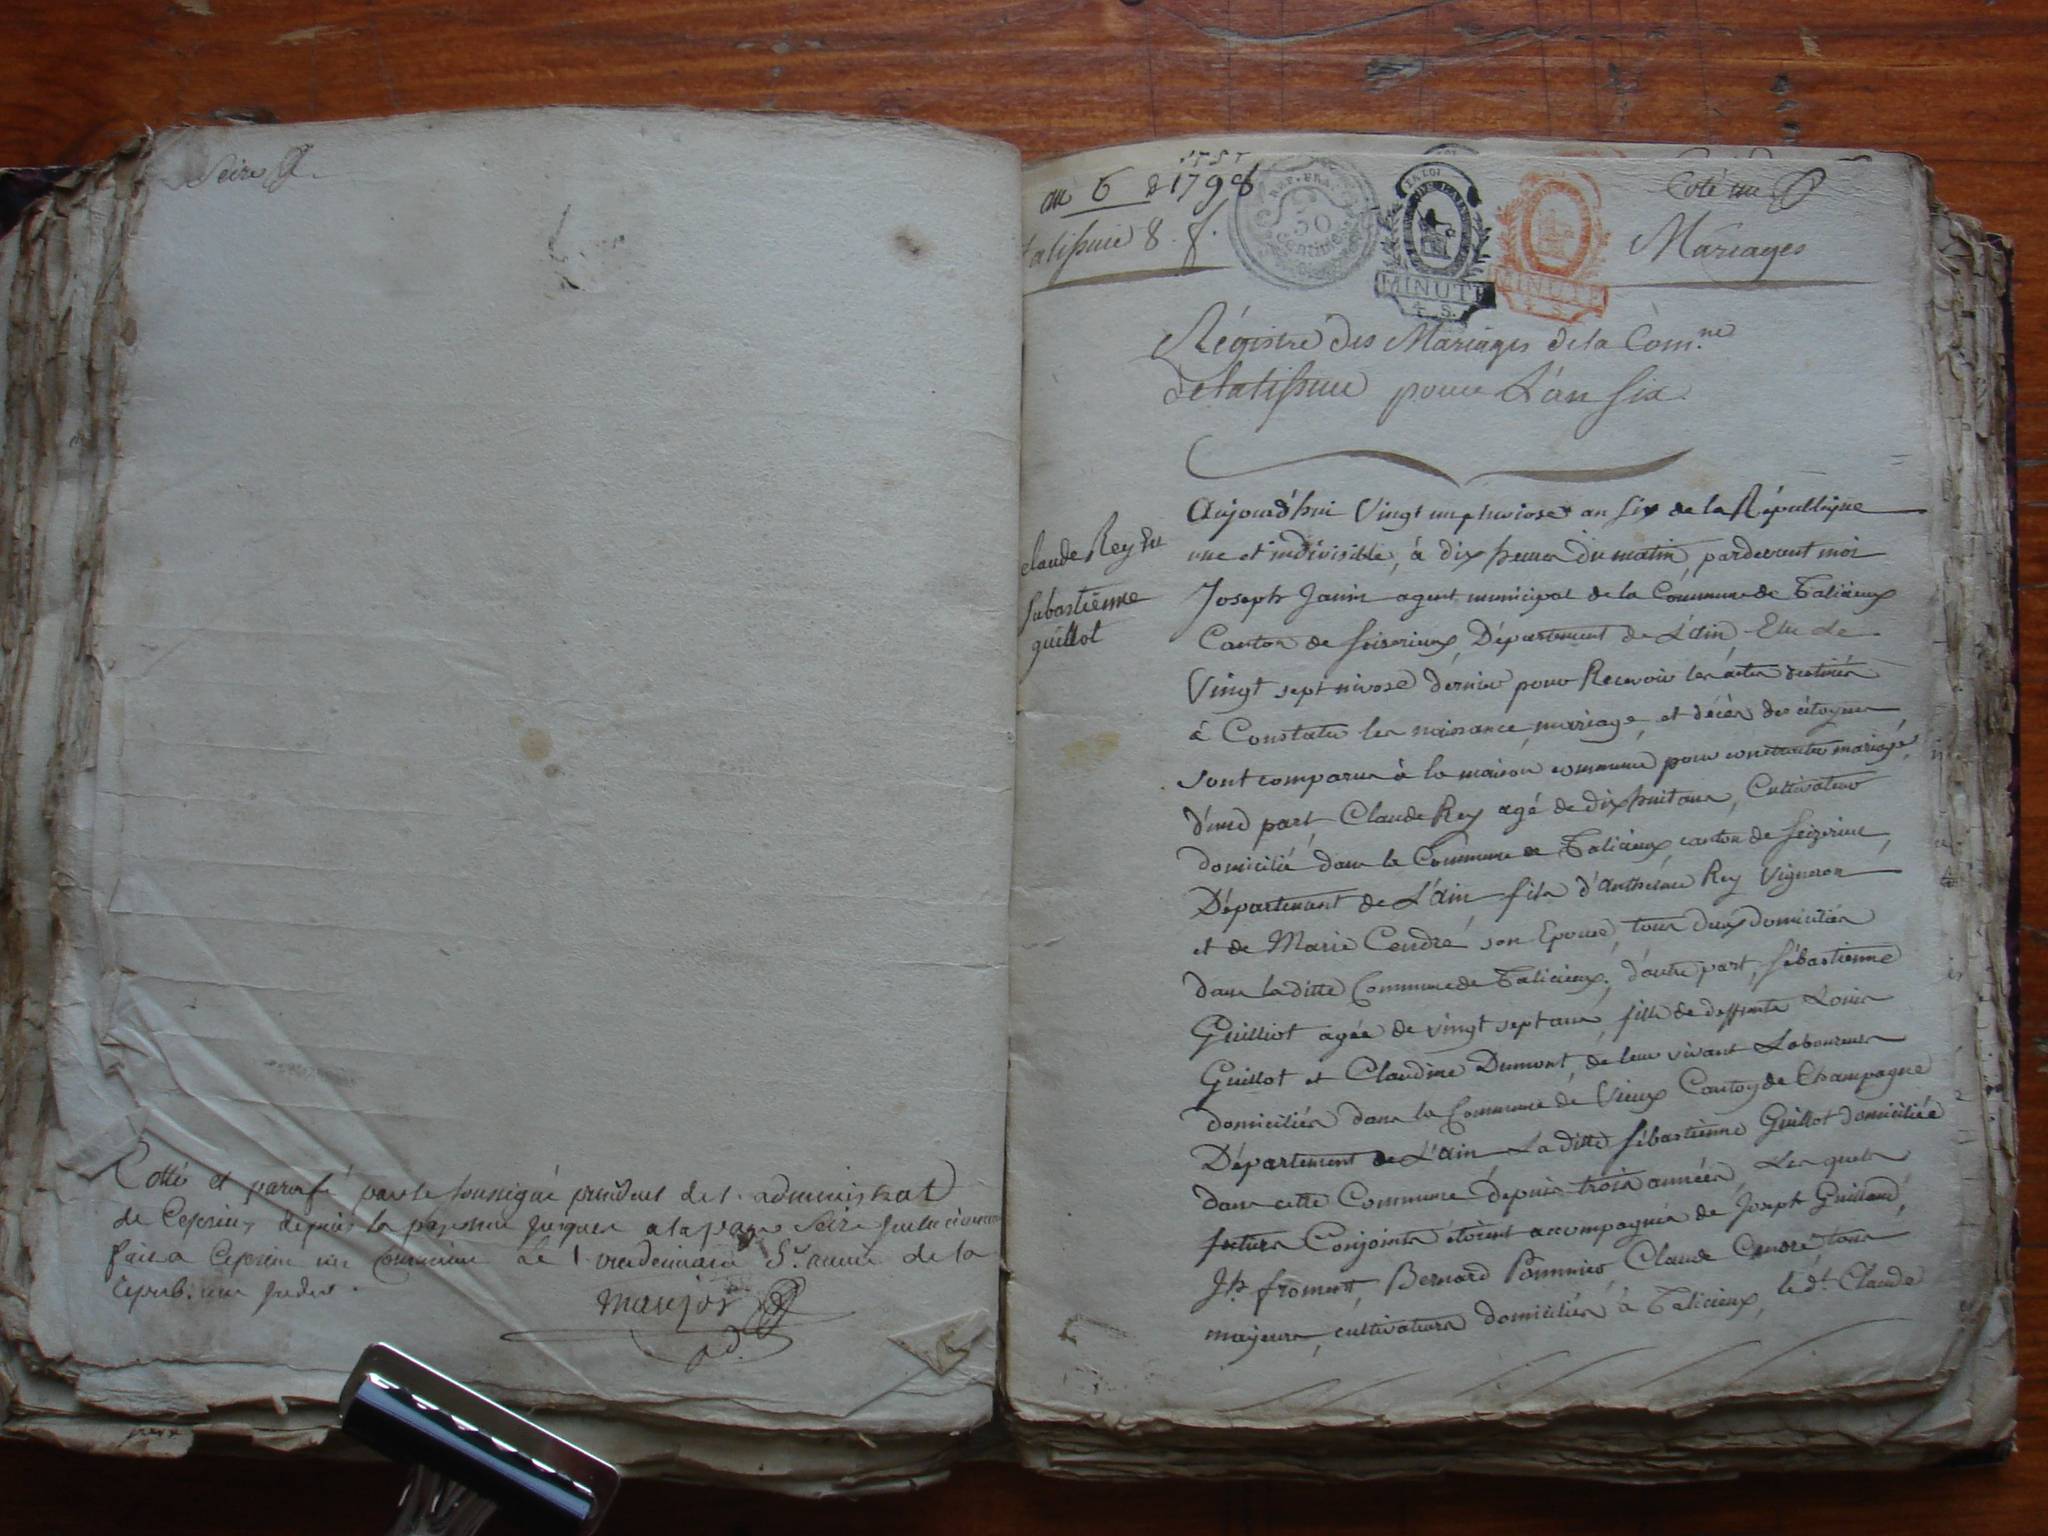 Seize
Cotté et paraffé par le soussigné président de l'administrat
de Ceyzerieu depuis la page une jusques a la page Seize
fait a Ceyzerieu 1 vendemiaire 5e année de la
répub. une
an 6 1798
talissieu 8
REP. FRA.
50
Centimes
LA LOI
MINUTE
4 S.
MINUTE
4 S.
Coté un
Mariages
Régistre des Mariages de la Com.ne
de talissieu pour L'an Six
Claude Rey Et
Sébastienne
guillot
Aujourd'hui Vingt un pluviose an Six de la République
une et indivisible, à dix heures du matin, pardevant moi
Joseph Janin agent municipal de la Commune de Talicieux
Canton de Seiserieux, Département de L'ain Elu le
Vingt sept nivose dernier pour Recevoir les actes destinés
à Constater les naissance, mariage, et décès des citoyens
sont comparus à la maison commune pour contracter mariage,
d'une part Claude Rey agé de dix huit ans, Cultivateur
domicilié dans la Commune de Talicieux canton de Seizerieu
Département de L'Ain fils d'Anthelme Rey Vigneron
et de Marie Cendré son Epouse, tous deux domiciliés
dans la ditte Commune de Talicieux; d'autre part, Sébastienne
Guilliot agée de vingt sept ans, fille de deffunts Louis
Guillot et Claudine Dumont, de leur vivant Laboureurs
domiciliés dans la Commune de Vieux Canton de Champagne
Département de L'Ain La ditte Sébastienne Guillot domiciliée
dans cette Commune depuis trois années, Les quels
futurs Conjoints étoient accompagnés de Joseph Guilland,
Jh. froment, Bernard Pommier Claude Cendré, tous
majeurs, cultivateurs domiciliés à Talicieux, le dt. Claude